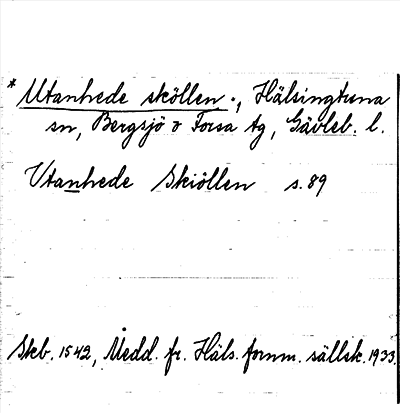 * Utanhede sköllen., Hälsingtuna
sn, Bergsjö o Forsa tg, Gävleb. l.
Utanhede Skiöllen s. 89
Skb. 1542, Medd. fr. Häls. fornm. sällsk. 1933.